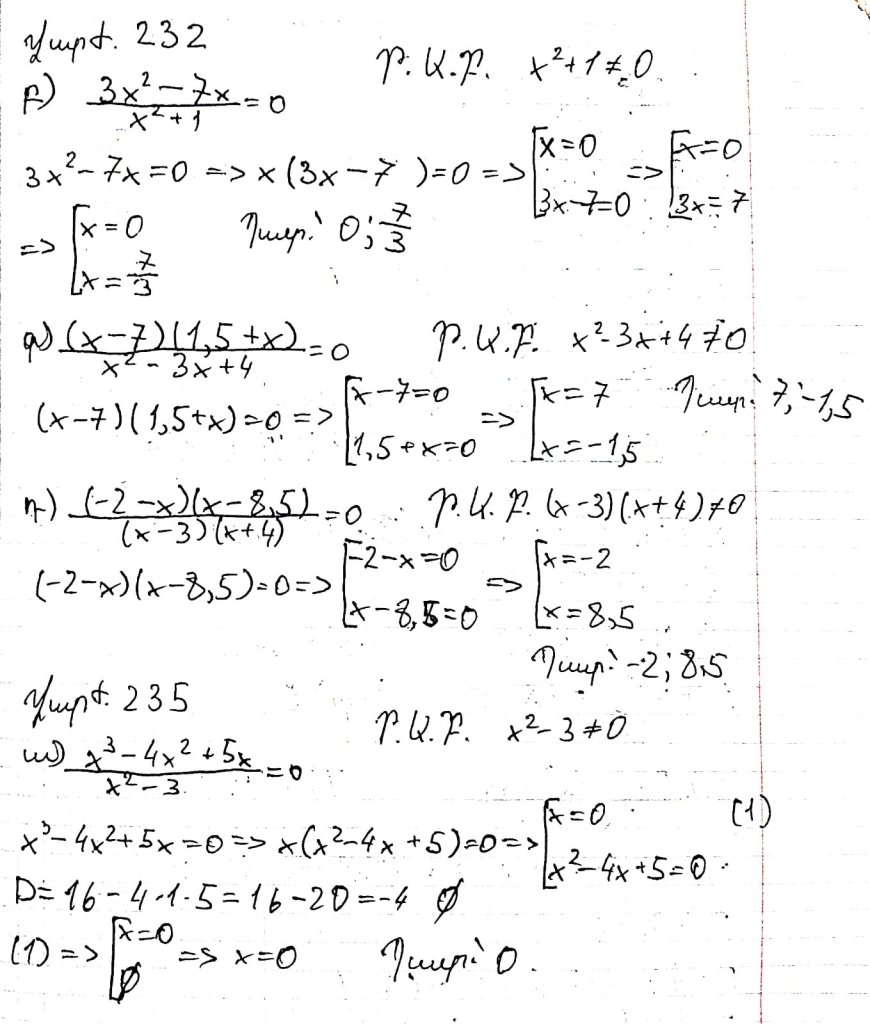 Վարժ. 232
բ) (3x² − 7x)/(x² + 1) = 0   Թ.Ա.Բ. x² + 1 ≠ 0
3x² − 7x = 0 => x(3x − 7) = 0 => [x = 0; 3x − 7 = 0 => [x = 0; 3x = 7
=> [x = 0; x = 7/3   Պատ.՝ 0; 7/3
գ) ((x − 7)(1,5 + x))/(x² − 3x + 4) = 0   Թ.Ա.Բ. x² − 3x + 4 ≠ 0
(x − 7)(1,5 + x) = 0 => [x − 7 = 0; 1,5 + x = 0 => [x = 7; x = −1,5   Պատ.՝ 7; −1,5
դ) ((−2 − x)(x − 8,5))/((x − 3)(x + 4)) = 0   Թ.Ա.Բ. (x − 3)(x + 4) ≠ 0
(−2 − x)(x − 8,5) = 0 => [−2 − x = 0; x − 8,5 = 0 => [x = −2; x = 8,5
Պատ.՝ −2; 8,5
Վարժ. 235
ա) (x³ − 4x² + 5x)/(x² − 3) = 0   Թ.Ա.Բ. x² − 3 ≠ 0
x³ − 4x² + 5x = 0 => x(x² − 4x + 5) = 0 => [x = 0; x² − 4x + 5 = 0   (1)
D = 16 − 4·1·5 = 16 − 20 = −4 ∅
(1) => [x = 0; ∅ => x = 0   Պատ.՝ 0.